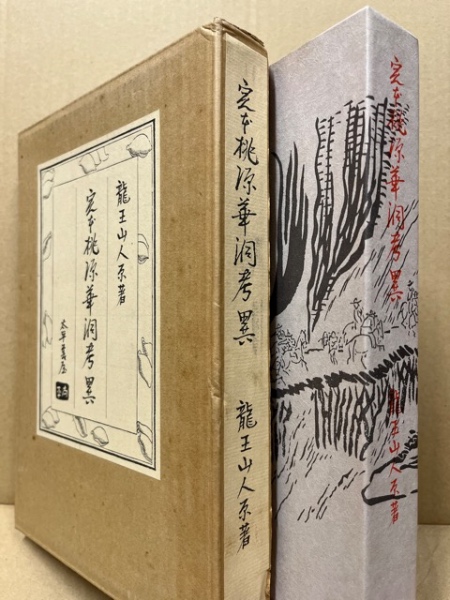 龍王山人原著
完本桃源華洞考異
太平書屋
完本桃源華洞考異
龍王山人原著
完本桃源華洞考異
龍王山人原著